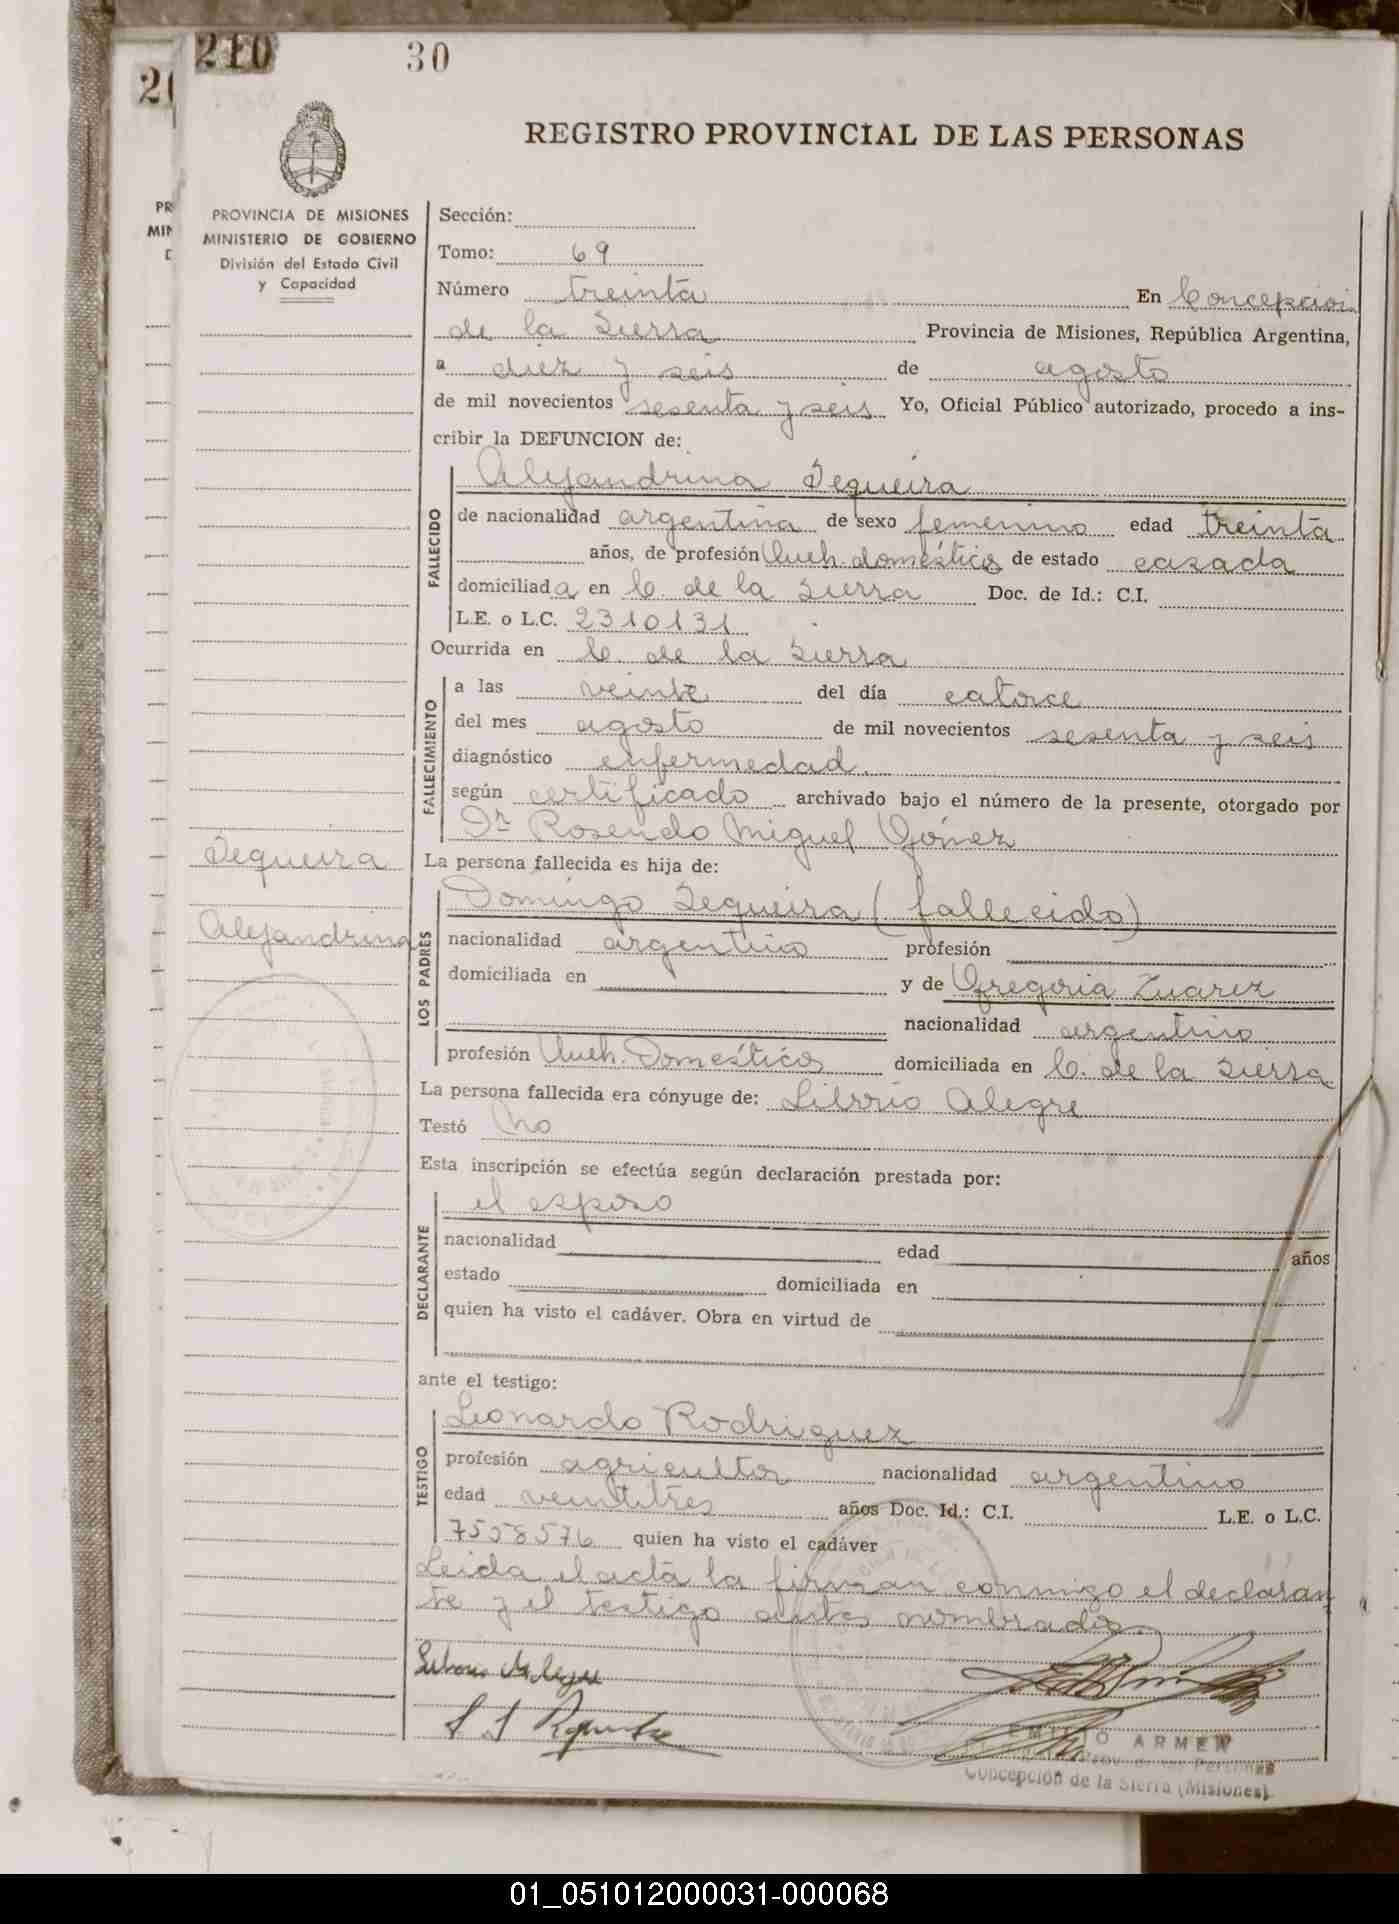 210
30
REGISTRO PROVINCIAL DE LAS PERSONAS
PROVINCIA DE MISIONES
MINISTERIO DE GOBIERNO
División del Estado Civil
y Capacidad
Sección:
Tomo: 69
Número treinta En Concepcion
de la Sierra Provincia de Misiones, República Argentina,
a diez y seis de agosto
de mil novecientos sesenta y seis Yo, Oficial Público autorizado, procedo a ins-
cribir la DEFUNCION de:
FALLECIDO
Alejandrina Sequeira
de nacionalidad argentina de sexo femenino edad treinta
años, de profesión Queh. domésticos de estado casada
domiciliada en C. de la Sierra Doc. de Id.: C.I.
L.E. o L.C. 2310131
Ocurrida en C. de la Sierra
FALLECIMIENTO
a las veinte del día catorce
del mes agosto de mil novecientos sesenta y seis
diagnóstico enfermedad.
según certificado archivado bajo el número de la presente, otorgado por
Dr Rosendo Miguel Gómez
Sequeira
Alejandrina
La persona fallecida es hija de:
LOS PADRES
Domingo Sequeira (fallecido)
nacionalidad argentino profesión
domiciliada en y de Gregoria Zuarez
nacionalidad argentino
profesión Queh. Domésticos domiciliada en C. de la Sierra
La persona fallecida era cónyuge de: Librrio Alegre
Testó No
Esta inscripción se efectúa según declaración prestada por:
DECLARANTE
el esposo
nacionalidad edad años
estado domiciliada en
quien ha visto el cadáver. Obra en virtud de
ante el testigo:
TESTIGO
Leonardo Rodriguez
profesión agricultor nacionalidad argentino
edad veintitrés años Doc. Id.: C.I. L.E. o L.C.
7558576 quien ha visto el cadáver
Leida el acta la firman conmigo el declaran
te y el testigo antes nombrados.
EMILIO ARMEN
Concepción de la Sierra (Misiones)
01_051012000031-000068